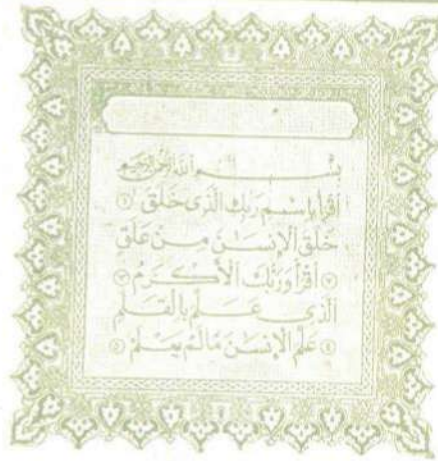 بسم الله الرحمن الرحيم
اقرأ باسم ربك الذي خلق ۱
خلق الإنسـٰن من علق
۲ اقرأ وربك الأكرم ۳
الذي علم بالقلم
٤ علم الإنسـٰن مالم يعلم ٥